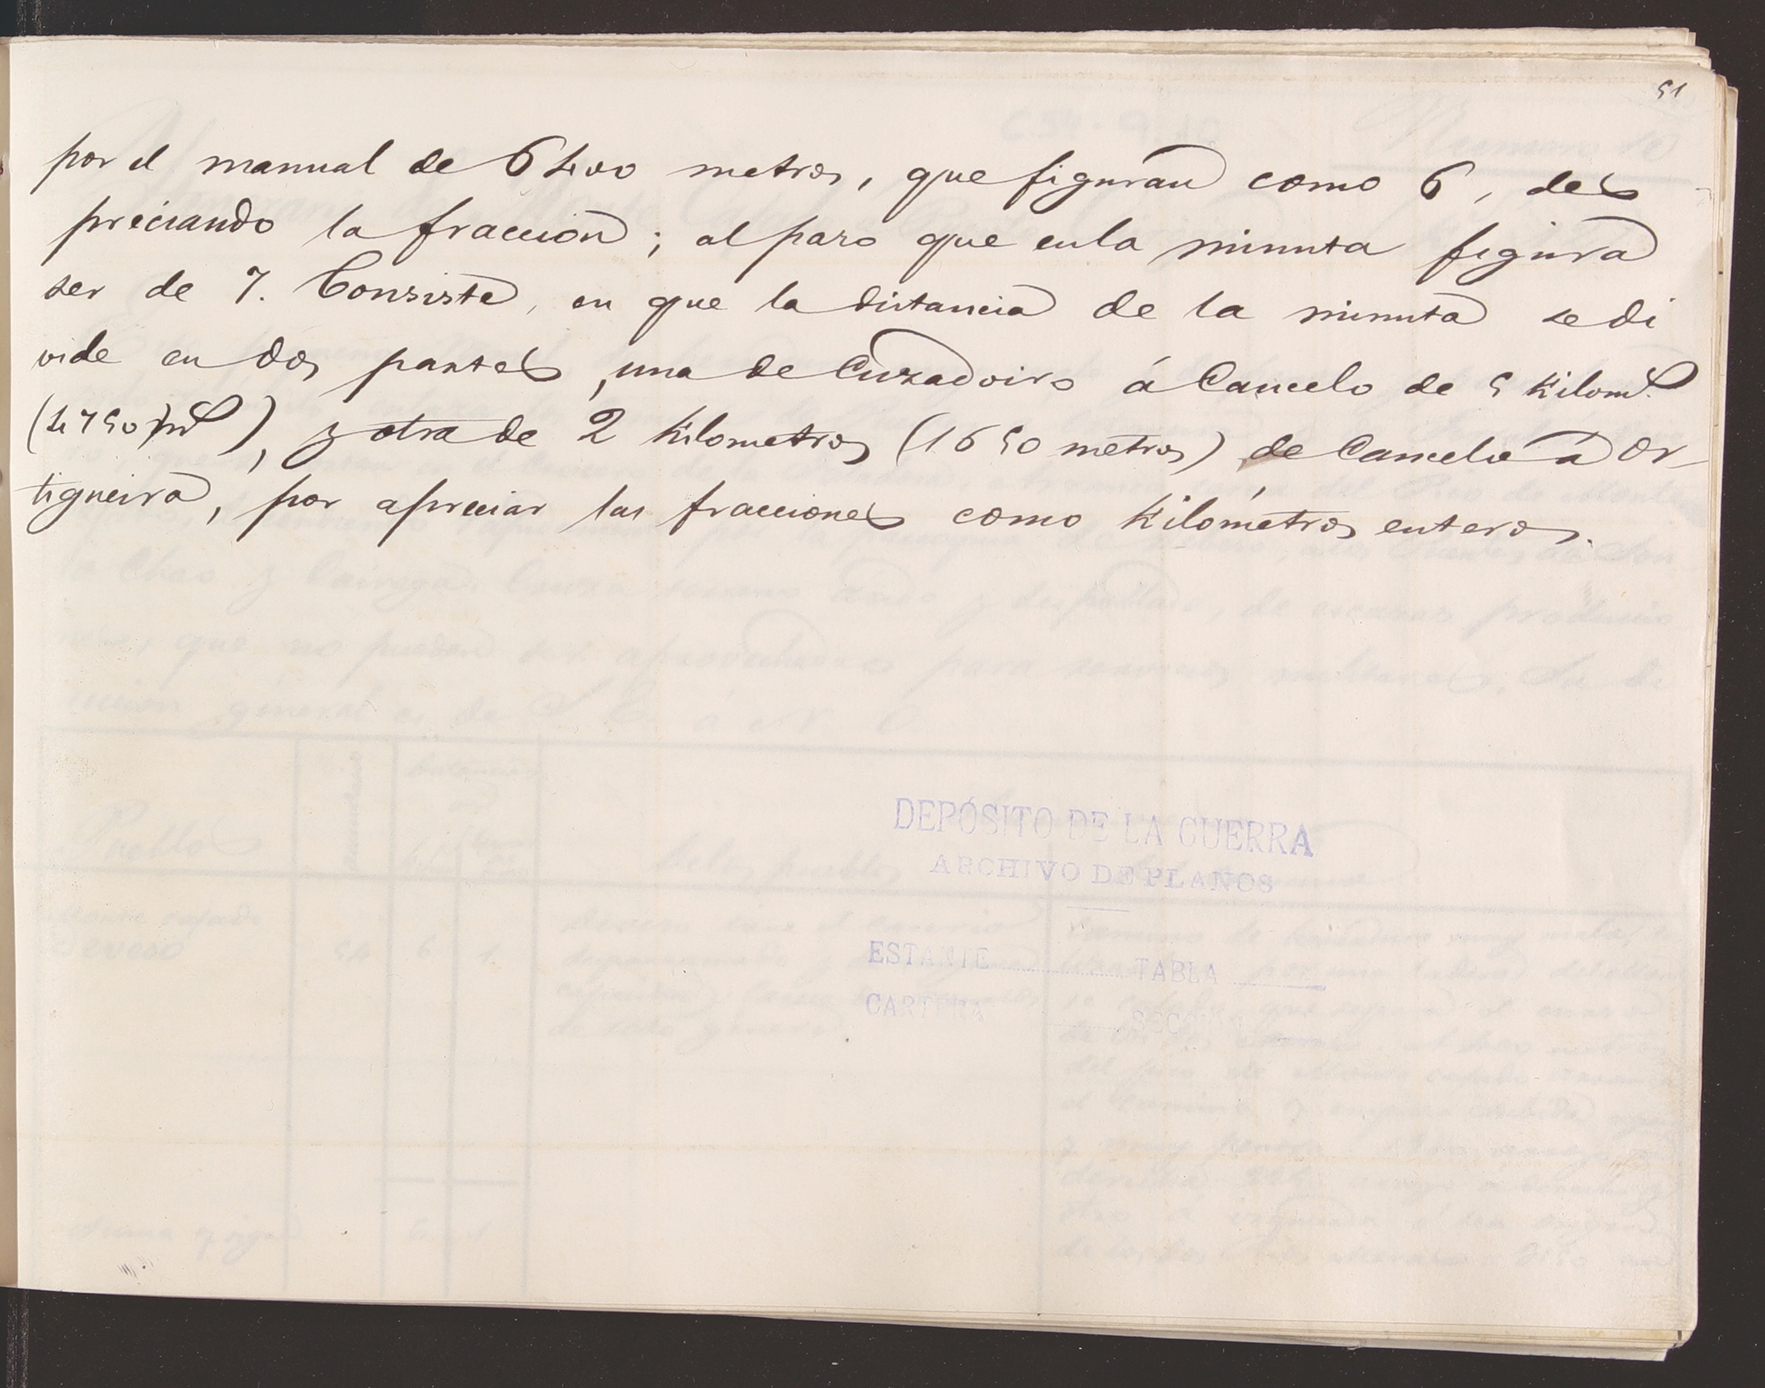 51
por el manual de 6400 metros, que figuran como 6, des
preciando la fraccion; al paso que en la minuta figura
ser de 7. Consiste, en que la distancia de la minuta se di
vide en dos partes, una de Cuzadoiro á Cancelo de 5 Kilom.s
(4750 m.s), y otra de 2 Kilometros (1650 metros) de Cancelo á Or-
tigueira, por apreciar las fracciones como Kilómetros enteros.
DEPÓSITO DE LA GUERRA
ARCHIVO DE PLANOS
ESTANTE TABLA
CARTERA